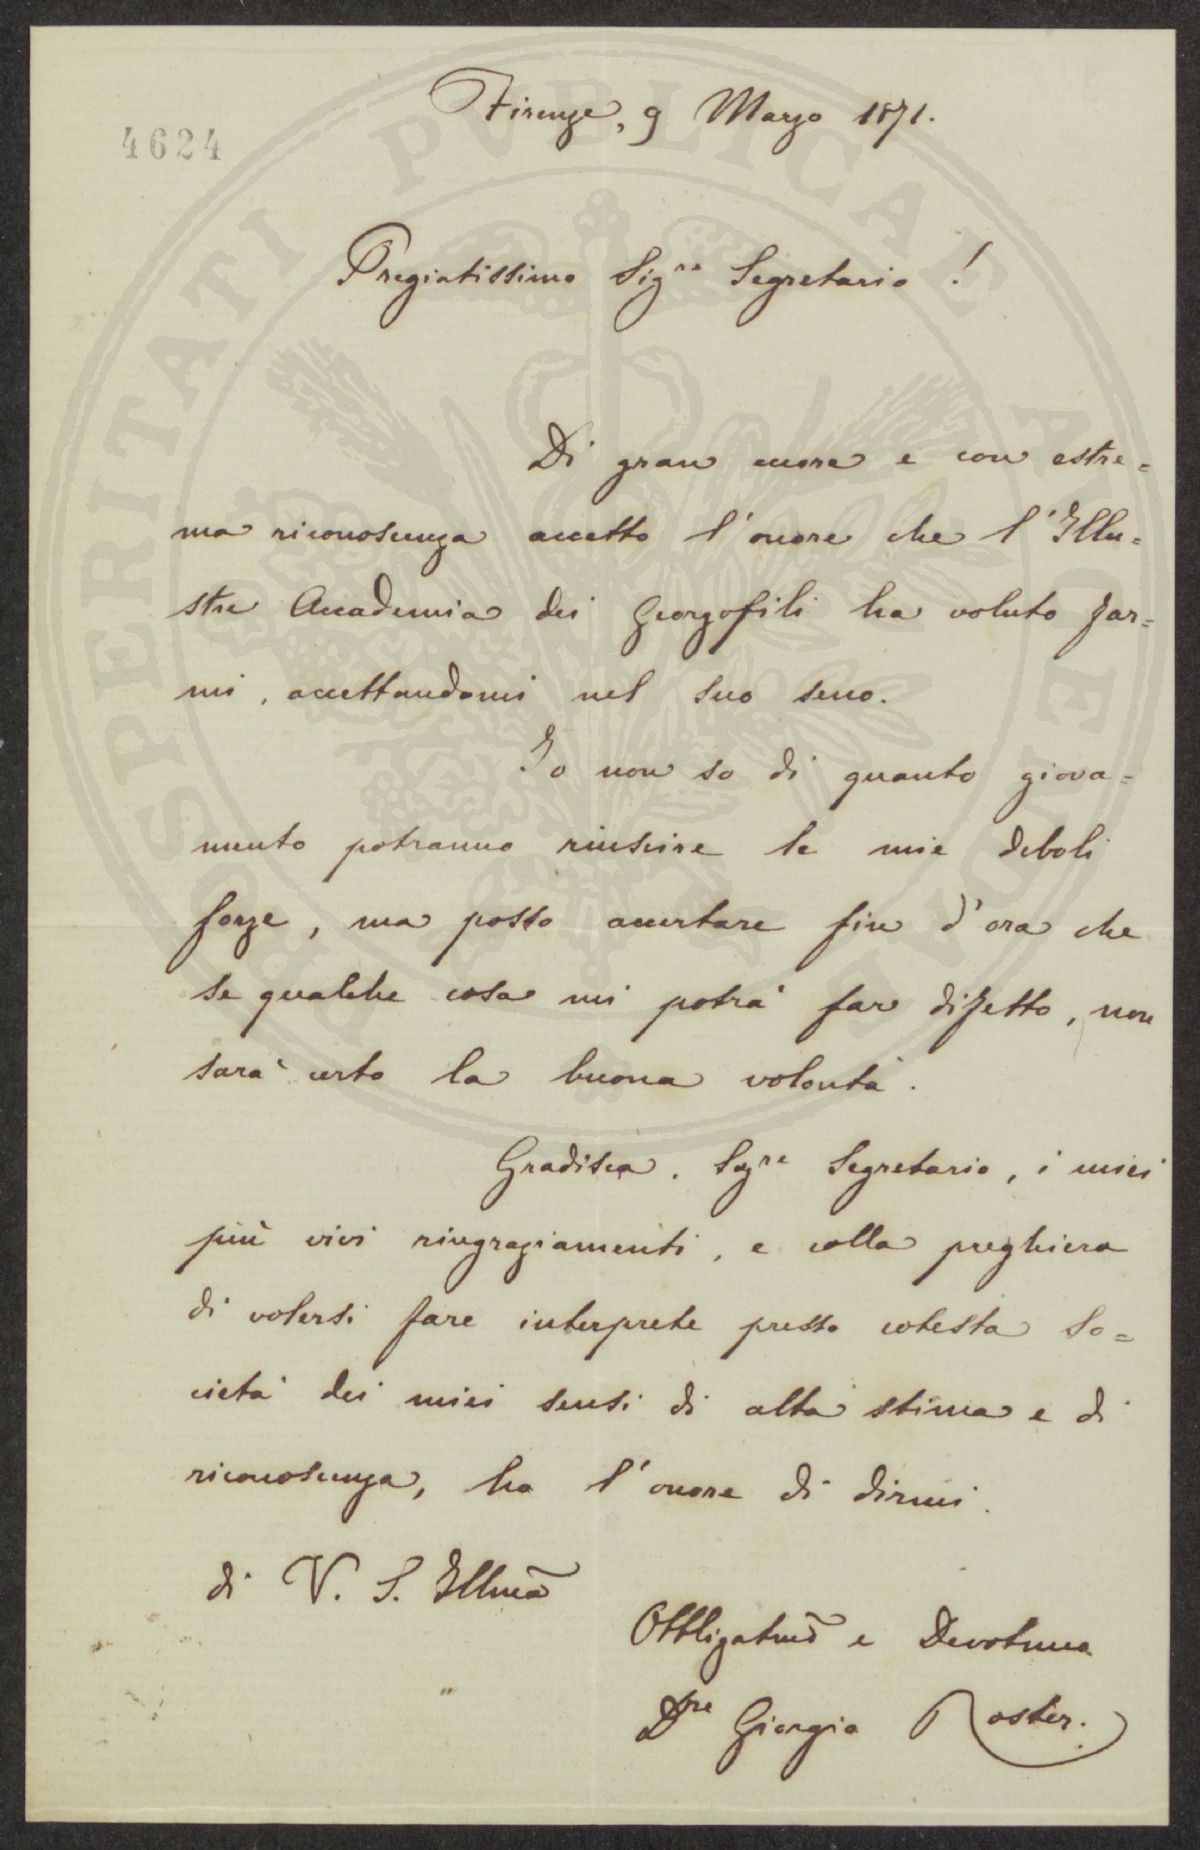 Firenze, 9 Marzo 1871.
4624
PROSPERITATI PUBLICAE AUGENDAE
Pregiatissimo Sigre Segretario!
Di gran cuore e con estre=
ma riconoscenza accetto l'onore che l'Illu=
stre Accademia dei Georgofili ha voluto far=
mi, accettandomi nel suo seno.
Io non so di quanto giova=
mento potranno riuscire le mie deboli
forze, ma posso accertare fin d'ora che
se qualche cosa mi potrà far difetto, non
sarà certo la buona volontà.
Gradisca, Sigre Segretario, i miei
più vivi ringraziamenti, e colla preghiera
di volersi fare interprete presso cotesta So=
cietà dei miei sensi di alta stima e di
riconoscenza, ho l'onore di dirmi.
di V. S. Illma
Obbligatmo e Devotmo
Dre Giorgio Roster.